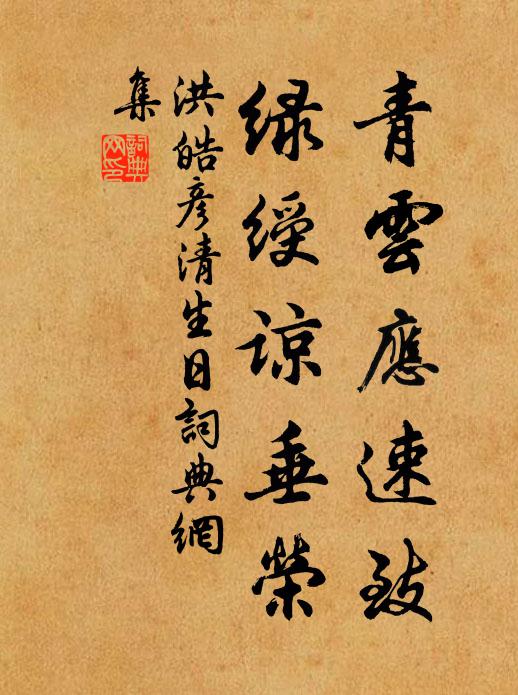 青雲應速致
綠綬諒垂榮
洪皓彥清生日詞典網
集
詞典